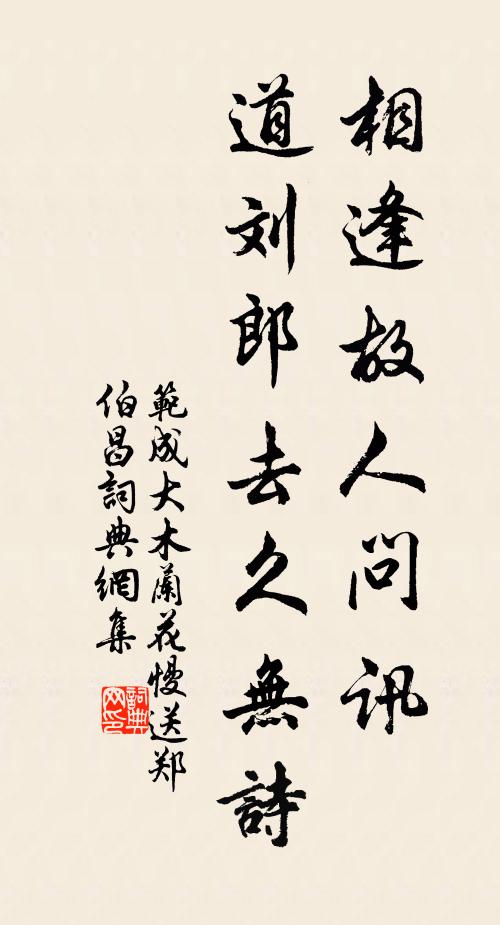 相逢故人问讯
道刘郎去久無詩
範成大木蘭花慢送郑
伯昌詞典網集
詞典网印